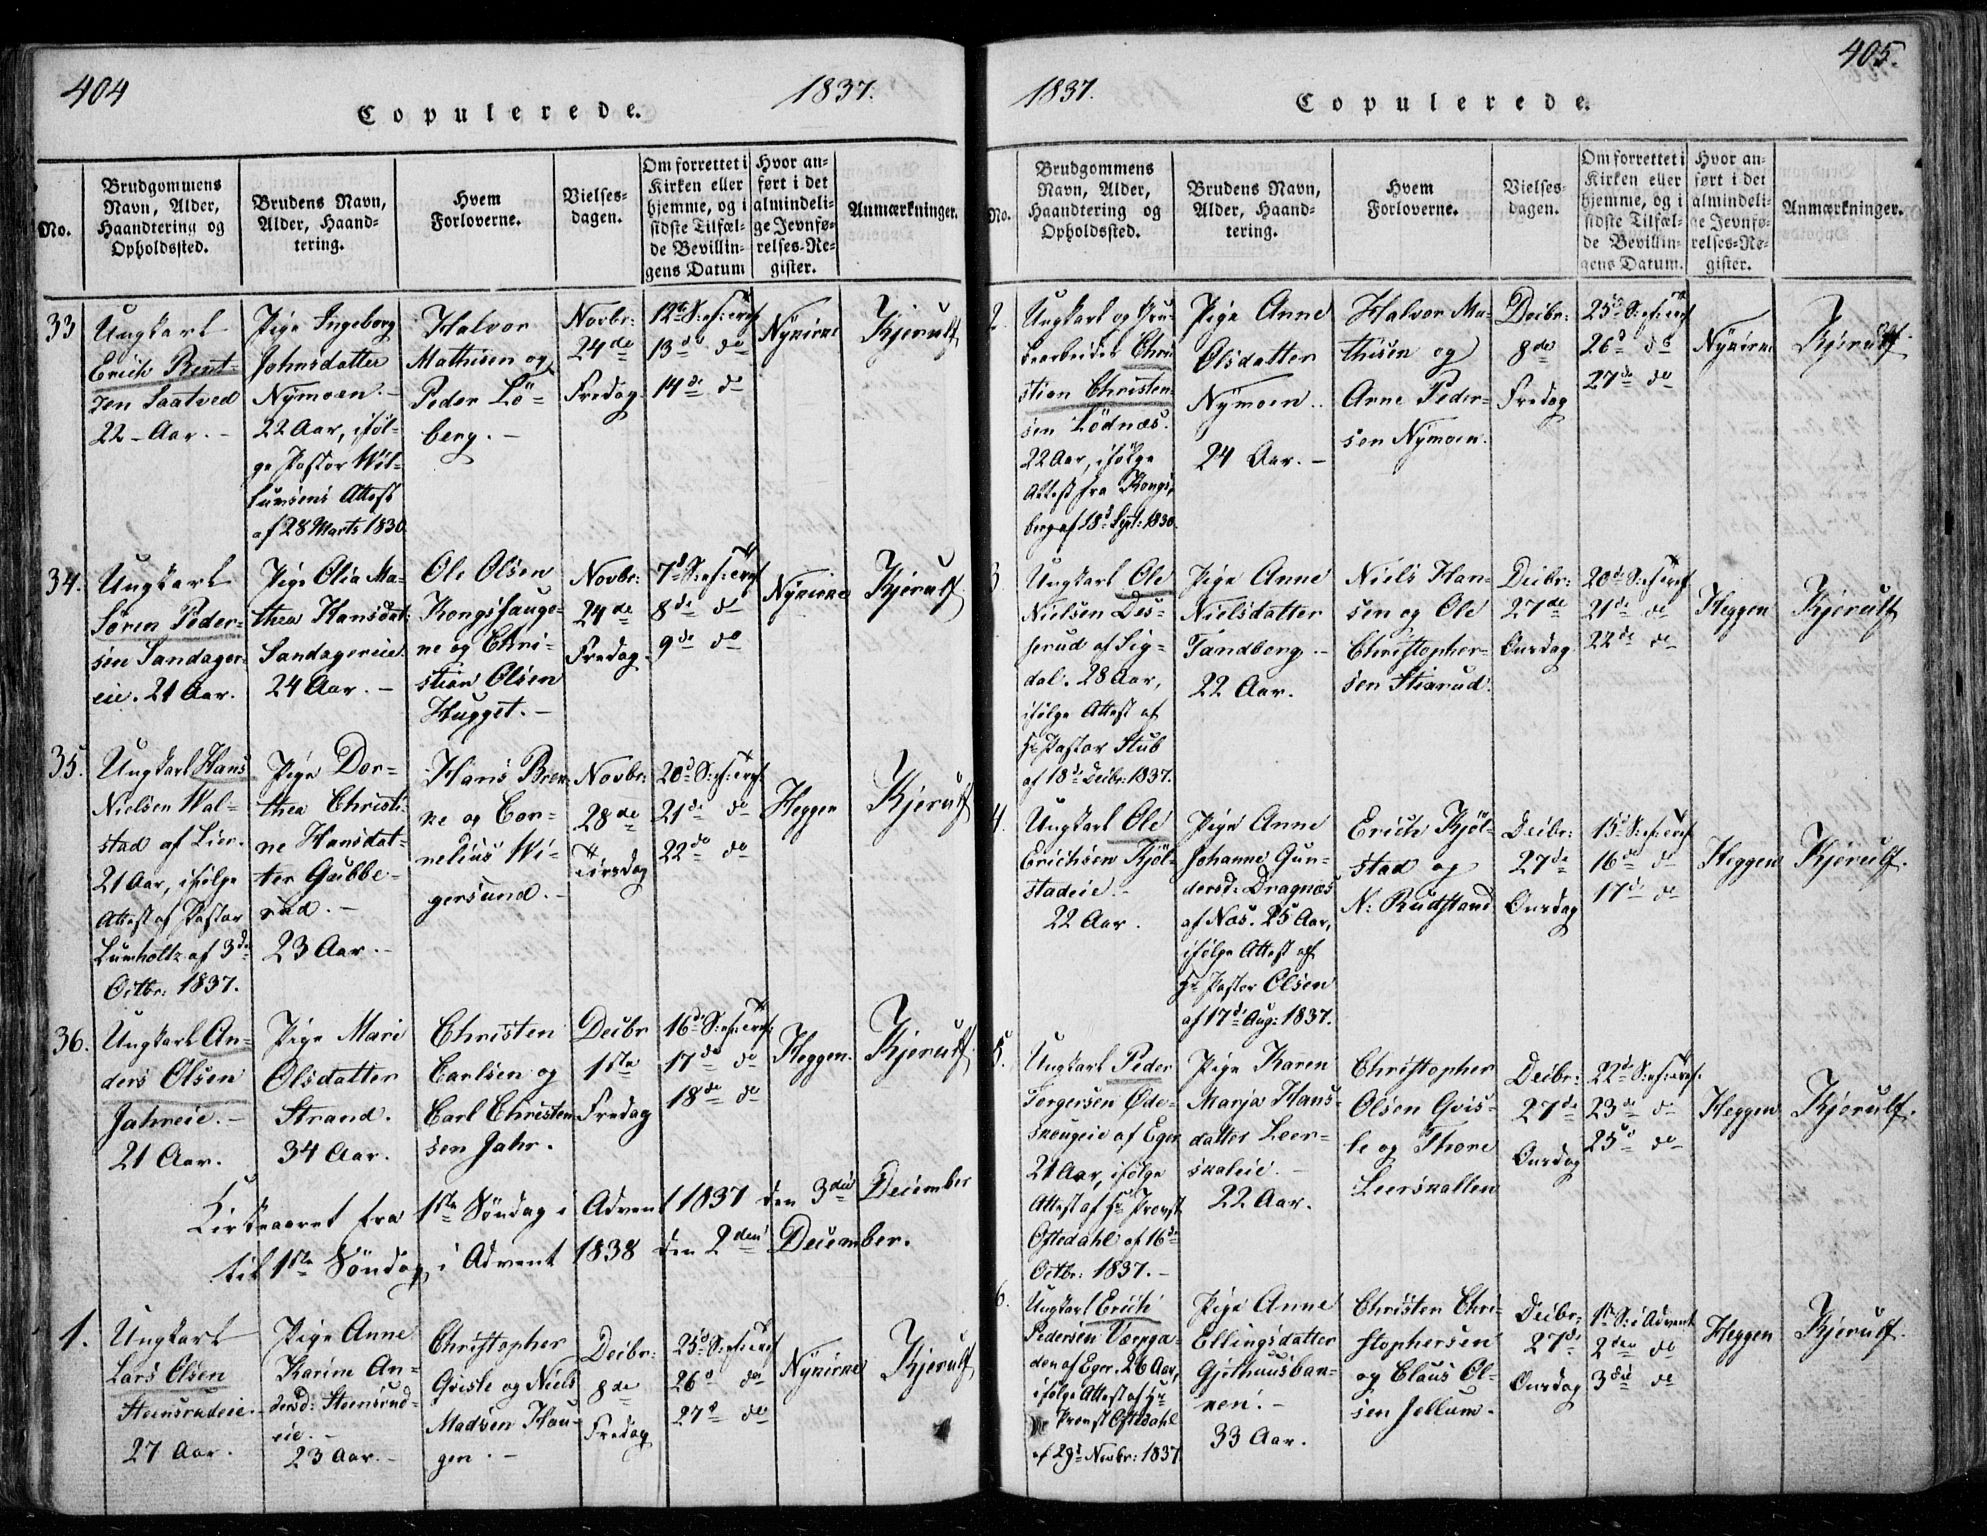 404
1837.
Copulerede.
No.
Brudgommens
Navn, Alder,
Haandtering og
Opholdssted.
Brudens Navn,
Alder, Haand-
tering.
Hvem
Forloverne.
Vielses-
dagen.
Om forrettet i
Kirken eller
hjemme, og i
sidste Tilfæl-
de Bevillin-
gens Datum
Hvor an-
ført i det
almindeli-
ge Jevnfø-
relses-Re-
gister.
Anmærkninger.
33
Ungkarl
Erich Bent-
zen Saatved
22-Aar.-
Pige Ingeborg
Johnsdatter
Nÿmoen.-
22 Aar, iføl-
ge Pastor
Attest
af 28 Marts 1830
Halvor
Mathisen og
Peder Lö-
berg.-
Novbr:
24de
Fredag
13de do
14de do
Nÿkirke
Kjerulf
34.
Ungkarl
Sören Peder-
sen Sandager-
eie. 21 Aar.
Pige Olia Ma-
thea Hansdat:
Sandagereie
24 Aar.-
Ole Olsen
Kongshauge-
ne og Chri-
stian Olsen
Hugget.-
Novbr:
24de
Fredag.
8de do
9de do
Nÿkirke
Kjerulf
35.
Ungkarl Hans
Nielsen Wal-
stad af Lier.
21 Aar, ifølge
Attest af Pastor
Lumholtz af 3de
Octbr: 1837.
Pige Dor-
thea Christi-
ne Hansdat-
ter Gubbe-
rud.-
23 Aar.-
Hans Bren-
ne og Cor-
nelius Wi-
gersund.-
Novbr:
28de
Tirsdag
21de do
22de do
Heggen
Kjerulf
36.
Ungkarl An-
ders Olsen
Jahreie.-
21 Aar.
Pige Mari
Olsdatter
Strand.
34 Aar.
Christen
Carlsen og
Carl Christen-
sen Jahr.
Decbr
1ste
Fredag
17de do
18de do
Heggen.
Kjerulf
Kirkeaaret fra 1ste Söndag i Advent 1837 den 3die December
til 1ste Söndag i Advent 1838 den 2den December.
1.
Ungkarl
Lars Olsen
Steensrudeie.
27 Aar.
Pige Anne
Karine An-
dersd: Steensrud-
eie.-
23 Aar.-
Christopher
Gvisle og Niels
Madsen Hau-
gen.-
Decbr:
8de
Fredag
26d do
27d do
Nÿkirke
Kjerulf
405.
1837.
Copulerede.
No.
Brudgommens
Navn, Alder,
Haandtering og
Opholdssted.
Brudens Navn,
Alder, Haand-
tering.
Hvem
Forloverne.
Vielses-
dagen.
Om forrettet i
Kirken eller
hjemme, og i
sidste Tilfæl-
de Bevillin-
gens Datum.
Hvor an-
ført i det
almindeli-
ge Jevnfø-
relses-Re-
gister.
Anmærkninger.
2.
Ungkarl og Gru-
bearbeider Chri-
stian Christen-
sen Lödnæs.
22 Aar, ifølge
Attest fra Kongs-
berg af 18d Sept: 1830.
Pige Anne
Olsdatter
Nÿmoen.
24 Aar.-
Halvor Ma-
thisen og
Arne Peder-
sen Nÿmoen.
Decbr:
8de
Fredag
26d do
27de do
Nÿkirke
Kjerulf
3
Ungkarl Ole
Nielsen Des-
serud af Sig-
dal. 28 Aar,
ifølge Attest af
Hr Pastor Stub
af 18de Decbr: 1837.
Pige Anne
Nielsdatter
Tandberg.-
22 Aar.
Niels Han-
sen og Ole
Christopher-
sen Stixrud.
Decbr:
27de
Onsdag
21de do
22de do
Heggen
Kjerulf
4.
Ungkarl Ole
Erichsen Kjöl-
stadeie.-
22 Aar.
Pige Anne
Johanne Gun-
dersd: Dragnæs
af Næs. 25 Aar,
ifølge Attest af
Hr Pastor Olsen
af 17de Aug: 1837.
Erich Kjöl-
stad og
N: Rudstand
Decbr:
27de
Onsdag
16de do
17de do
Heggen
Kjerulf.
5.
Ungkarl Peder
Torgersen Øde-
skougeie af Eger
21 Aar, ifølge
Attest af Hr Provst
Oftedahl af 16de
Octbr: 1837.-
Pige Karen
Marja Hans-
datter Leer-
skaleie.-
22 Aar.
Christopher
Olsen Gvis-
le og Thore
Leerskallen
Decbr:
27de
Onsdag
23de do
25de do
Heggen
Kjerulf.
6.
Ungkarl Erich
Pedersen
af Eger. 26 Aar,
ifølge Attest af Hr
Provst Oftedahl
af 29d Novbr: 1837.
Pige Anne
Ellingsdatter
Gjethuusbak-
ken.-
33 Aar.
Christen Chri-
stophersen
og Claus Ol-
sen Jellum.
Decbr:
27de
Onsdag
1ste S: i Advent
2den do
3die do
Heggen
Kjerulf.